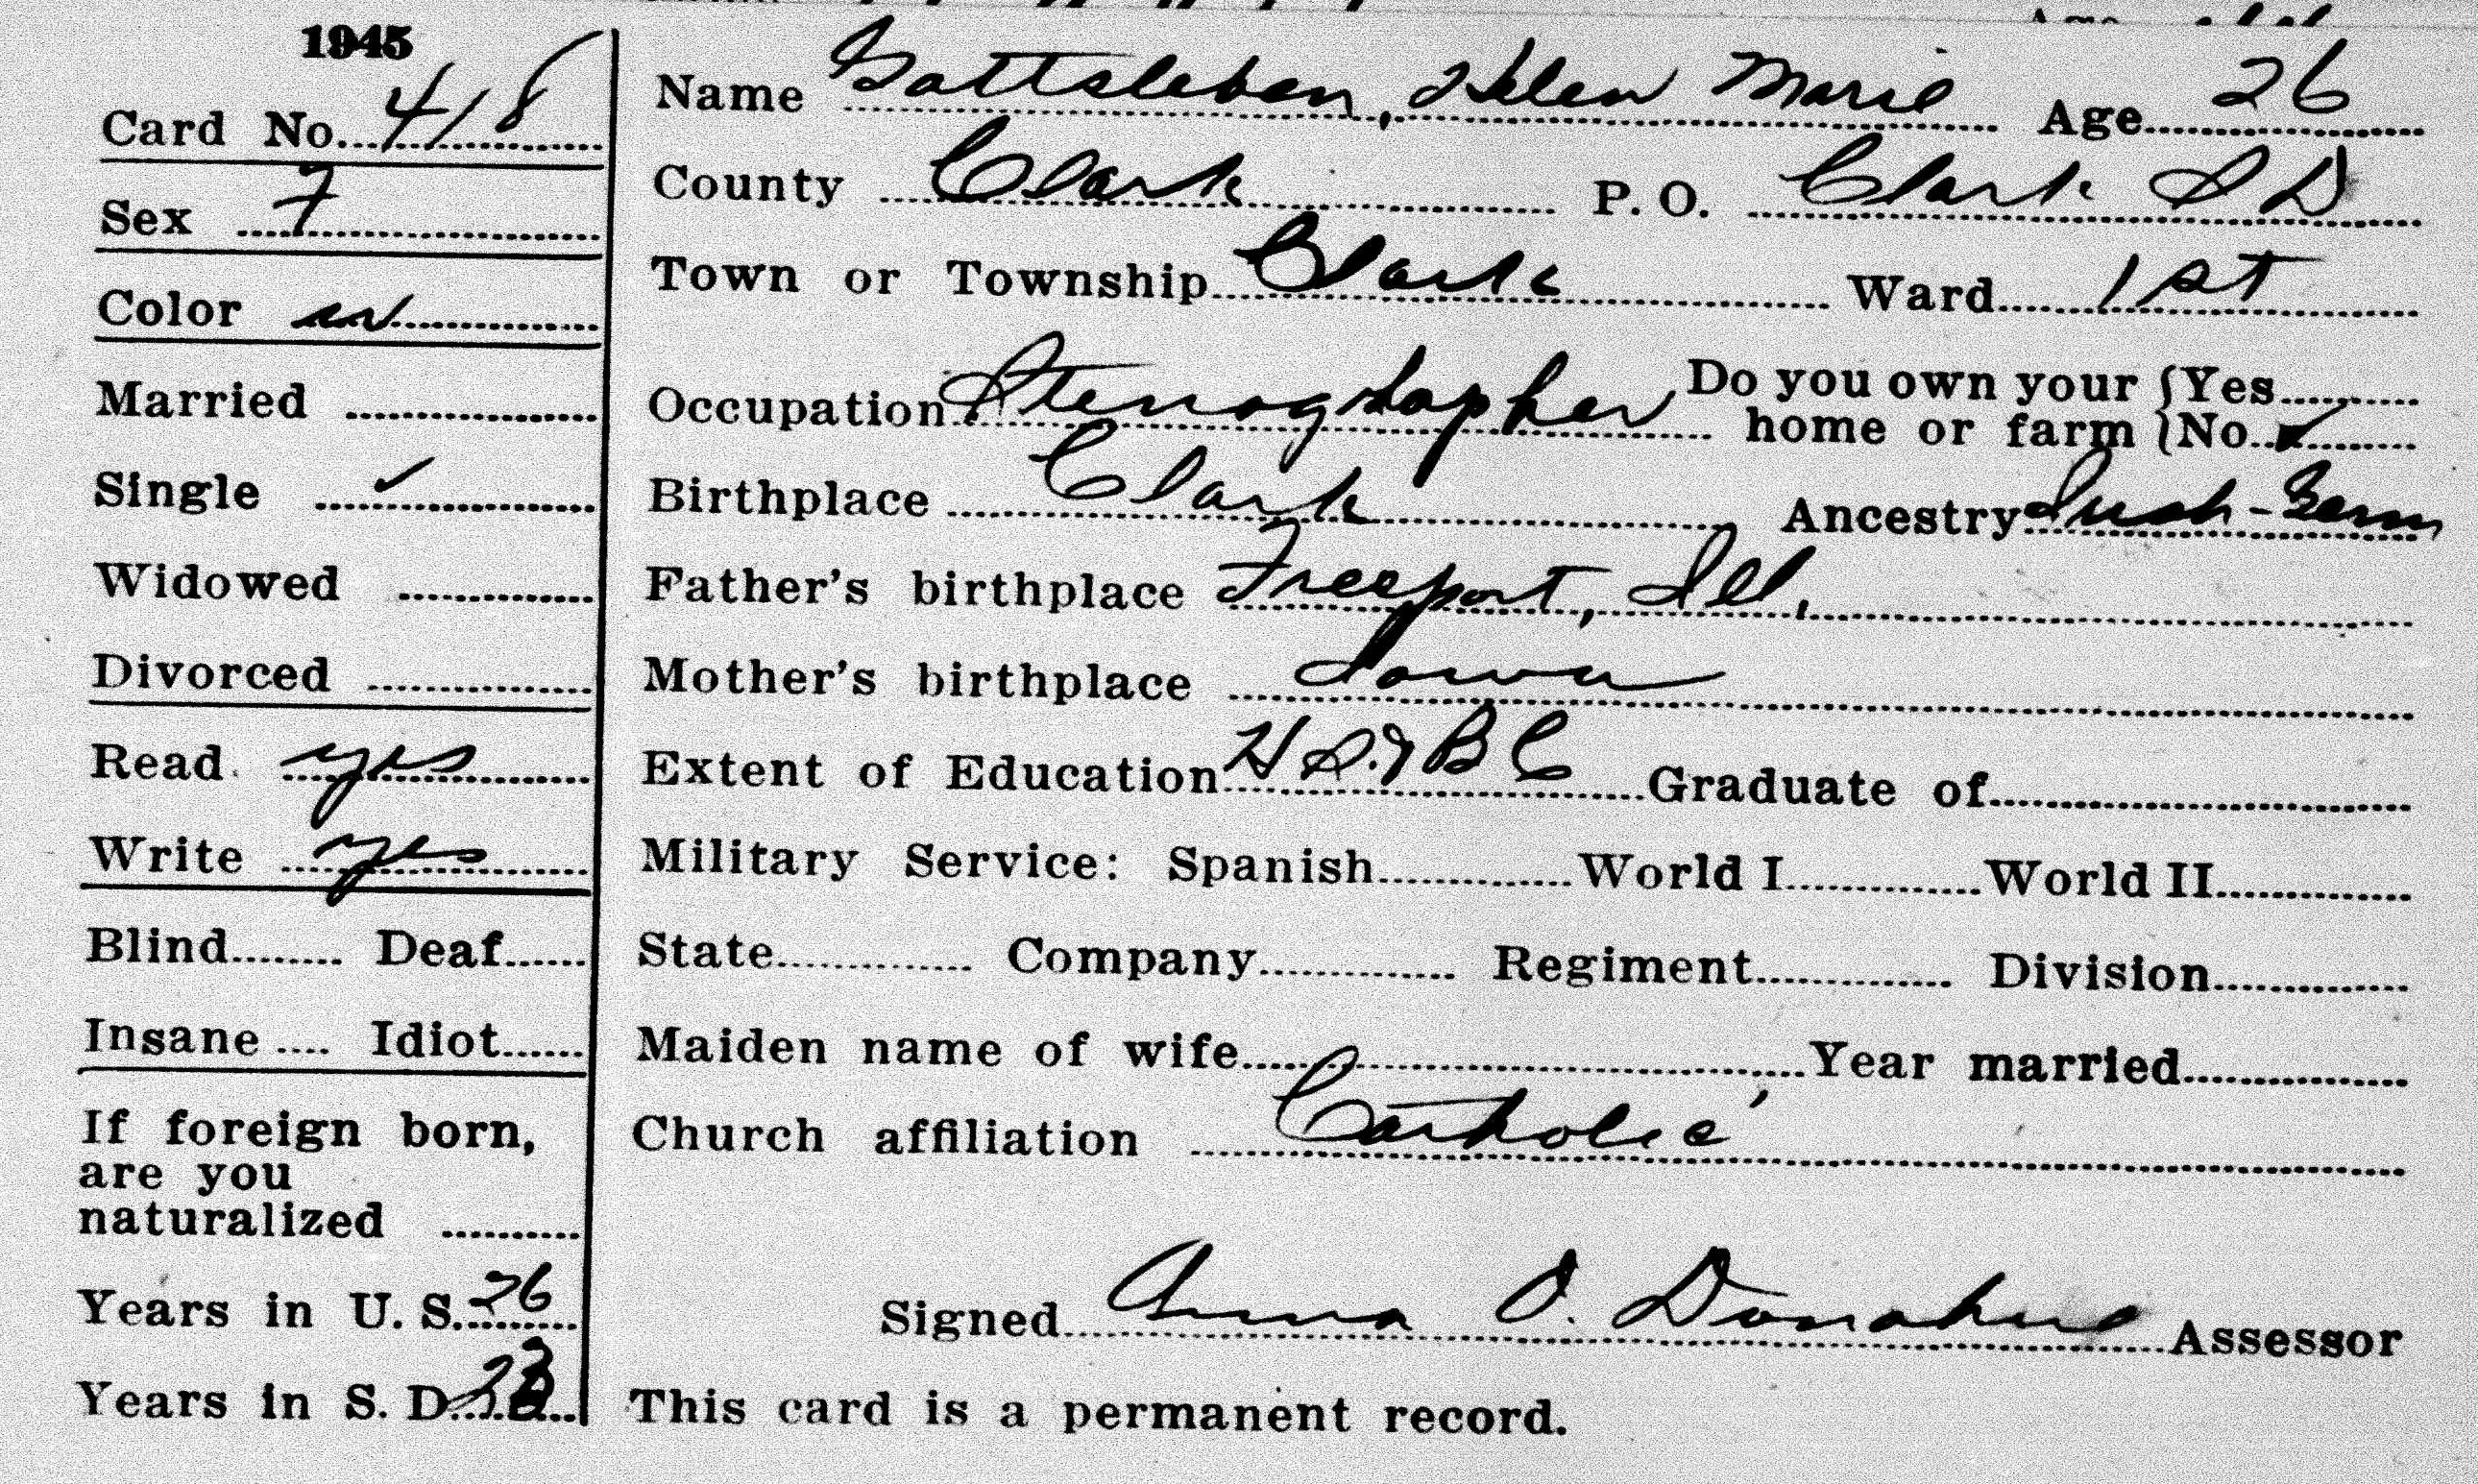 1945
Card No. 418
Sex F
Color w
Married
Single ✓
Widowed
Divorced
Read yes
Write yes
Blind Deaf
Insane Idiot
If foreign born,
are you
naturalized
Years in U. S. 26
Years in S. D. 23
Name Gottsleben, Helen Marie Age 26
County Clark P. O. Clark S D
Town or Township Clark Ward 1st
Occupation Stenographer Do you own your home or farm Yes No ✓
Birthplace Clark Ancestry Irish-Germ
Father's birthplace Freeport, Ill.
Mother's birthplace Iowa
Extent of Education H S. & B C Graduate of
Military Service: Spanish World I World II
State Company Regiment Division
Maiden name of wife Year married
Church affiliation Catholic
Signed Anna O. Donahue Assessor
This card is a permanent record.